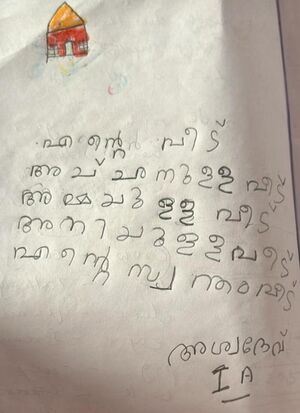 എന്റെ വീട്
അച്ചനുള്ള വീട്
അമ്മയുള്ള വീട്
അനിയുള്ള വീട്
എന്റെ സ്വന്തം വീട്
അശ്വദേവ്
I A